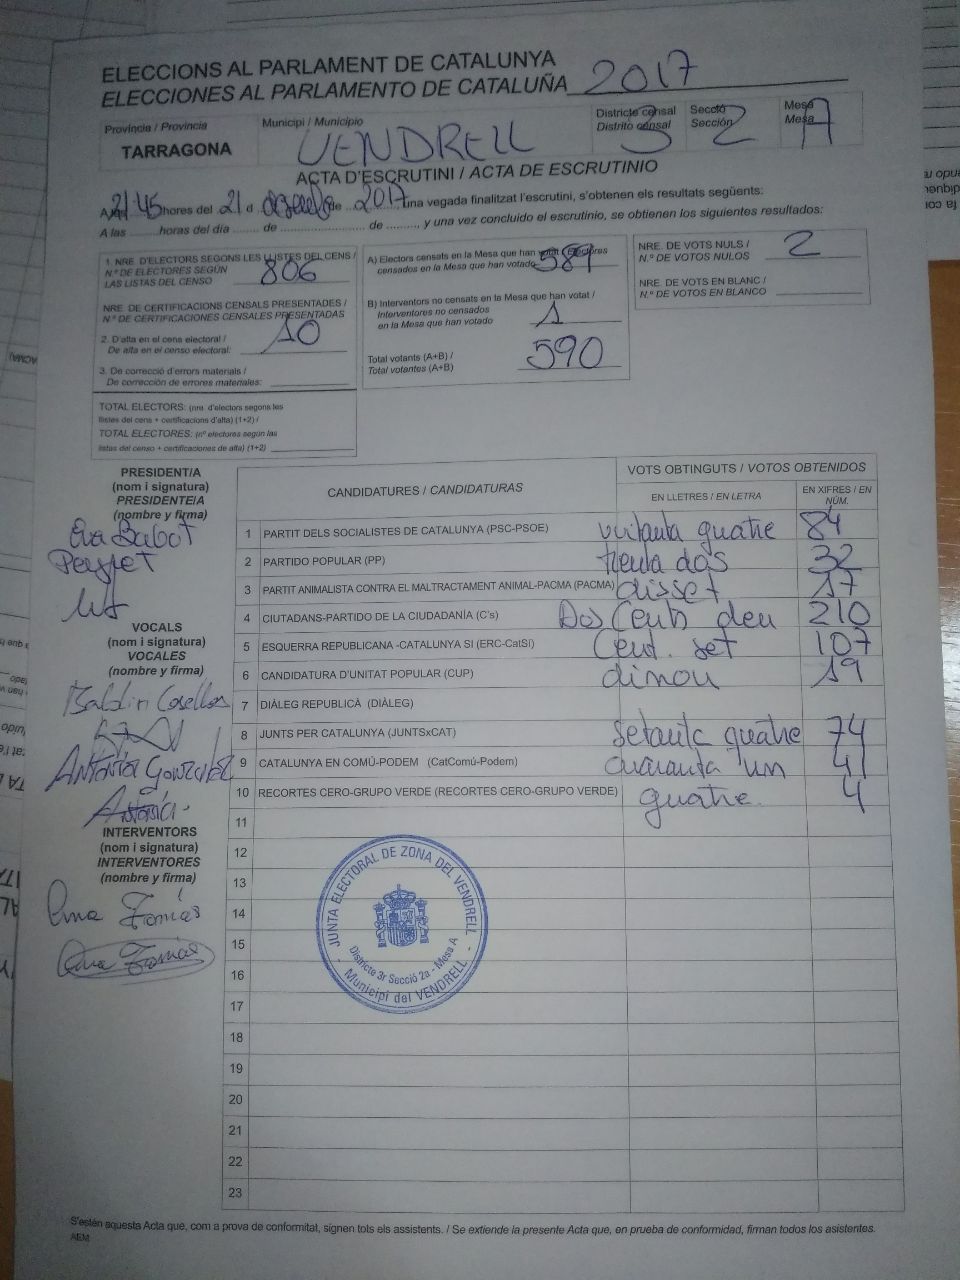 ELECCIONS AL PARLAMENT DE CATALUNYA
ELECCIONES AL PARLAMENTO DE CATALUÑA 2017
Província / Provincia
TARRAGONA
Municipi / Municipio
VENDRELL
Districte censal
Distrito censal
3
Secció
Sección
2
Mesa
Mesa
A
ACTA D'ESCRUTINI / ACTA DE ESCRUTINIO
A les 21'45 hores del 21 d desembre de 2017 una vegada finalitzat l'escrutini, s'obtenen els resultats següents:
A las ........ horas del día ....... de .......................... de .........., y una vez concluido el escrutinio, se obtienen los siguientes resultados:
1. NRE. D'ELECTORS SEGONS LES LLISTES DEL CENS /
N.º DE ELECTORES SEGÚN
LAS LISTAS DEL CENSO
806
NRE. DE CERTIFICACIONS CENSALS PRESENTADES /
N.º DE CERTIFICACIONES CENSALES PRESENTADAS
2. D'alta en el cens electoral /
De alta en el censo electoral:
10
3. De correcció d'errors materials /
De corrección de errores materiales:
TOTAL ELECTORS: (nre. d'electors segons les
llistes del cens + certificacions d'alta) (1+2) /
TOTAL ELECTORES: (nº electores según las
listas del censo + certificaciones de alta) (1+2)
A) Electors censats en la Mesa que han votat / Electores
censados en la Mesa que han votado
589
B) Interventors no censats en la Mesa que han votat /
Interventores no censados
en la Mesa que han votado
1
Total votants (A+B) /
Total votantes (A+B)
590
NRE. DE VOTS NULS /
N.º DE VOTOS NULOS
2
NRE. DE VOTS EN BLANC /
N.º DE VOTOS EN BLANCO
PRESIDENT/A
(nom i signatura)
PRESIDENTE/A
(nombre y firma)
Eva Babot
VOCALS
(nom i signatura)
VOCALES
(nombre y firma)
Antonia Gonzalez
Antonia
INTERVENTORS
(nom i signatura)
INTERVENTORES
(nombre y firma)
Ana Tomás
Ana Tomás
CANDIDATURES / CANDIDATURAS
VOTS OBTINGUTS / VOTOS OBTENIDOS
EN LLETRES / EN LETRA
EN XIFRES / EN NÚM.
1 PARTIT DELS SOCIALISTES DE CATALUNYA (PSC-PSOE) vuitanta quatre 84
2 PARTIDO POPULAR (PP) trenta dos 32
3 PARTIT ANIMALISTA CONTRA EL MALTRACTAMENT ANIMAL-PACMA (PACMA) disset 17
4 CIUTADANS-PARTIDO DE LA CIUDADANÍA (C's) Dos Cents deu 210
5 ESQUERRA REPUBLICANA -CATALUNYA SI (ERC-CatSí) Cent. set 107
6 CANDIDATURA D'UNITAT POPULAR (CUP) dinou 19
7 DIÀLEG REPUBLICÀ (DIÀLEG)
8 JUNTS PER CATALUNYA (JUNTSxCAT) Setanta quatre 74
9 CATALUNYA EN COMÚ-PODEM (CatComú-Podem) quaranta un 41
10 RECORTES CERO-GRUPO VERDE (RECORTES CERO-GRUPO VERDE) quatre. 4
11
12
13
14
15
16
17
18
19
20
21
22
23
JUNTA ELECTORAL DE ZONA DEL VENDRELL
Districte 3r Secció 2a - Mesa A
- Municipi del VENDRELL -
S'estén aquesta Acta que, com a prova de conformitat, signen tots els assistents. / Se extiende la presente Acta que, en prueba de conformidad, firman todos los asistentes.
AEM